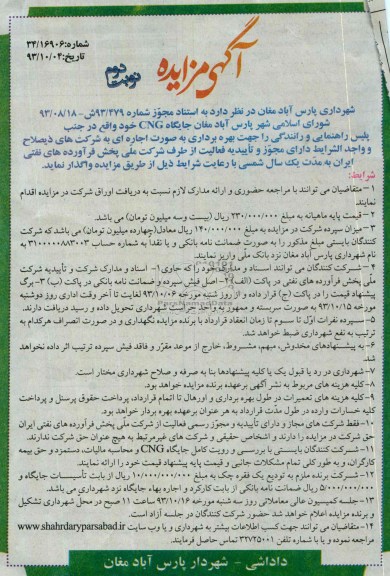 شماره: ۳۴/۱۶۹۰۶
تاریخ: ۹۳/۱۰/۰۴
آگهی مزایده
نوبت دوم
شهرداری پارس آباد مغان در نظر دارد به استناد مجوز شماره ۹۳/۴۷۹ش-۹۳/۰۸/۱۸
شورای اسلامی شهر پارس آباد مغان جایگاه CNG خود واقع در جنب
پلیس راهنمایی و رانندگی را جهت بهره برداری به صورت اجاره ای به شرکت های ذیصلاح
و واجد الشرایط دارای مجوز و تأییدیه فعالیت از طرف شرکت ملی پخش فرآورده های نفتی
ایران به مدت یک سال شمسی با رعایت شرایط ذیل از طریق مزایده واگذار نماید.
شرایط:
۱- متقاضیان می توانند با مراجعه حضوری و ارائه مدارک لازم نسبت به دریافت اوراق شرکت در مزایده اقدام
نمایند.
۲- قیمت پایه ماهیانه به مبلغ ۲۳۰/۰۰۰/۰۰۰ ریال (بیست وسه میلیون تومان) می باشد.
۳- میزان سپرده شرکت در مزایده به مبلغ ۱۴۰/۰۰۰/۰۰۰ ریال معادل(چهارده میلیون تومان) می باشد که شرکت
کنندگان بایستی مبلغ مذکور را به صورت ضمانت نامه بانکی و یا نقدا به شماره حساب ۳۱۰۰۰۰۰۸۸۳۰۰۳ به
نام شهرداری پارس آباد مغان نزد بانک ملی واریز نمایند.
۴- شرکت کنندگان می توانند اسناد و مدارک خود را که حاوی ۱- اسناد و مدارک شرکت و تأییدیه شرکت
ملی پخش فرآورده های نفتی در پاکت (الف) ۲- اصل فیش سپرده و ضمانت نامه بانکی در پاکت (ب) ۳- برگ
پیشنهاد قیمت را در پاکت (ج) قرار داده و از روز شنبه مورخه ۹۳/۱۰/۰۶ لغایت تا آخر وقت اداری روز دوشنبه
مورخه ۹۳/۱۰/۱۵ به صورت سربسته و ممهور به واحد حراست شهرداری تحویل داده و رسید دریافت دارند.
۵- سپرده نفرات اول تا سوم تا زمان انعقاد قرارداد با برنده مزایده نگهداری و در صورت انصراف هرکدام به
ترتیب به نفع شهرداری ضبط خواهد شد.
۶- به پیشنهادهای مخدوش، مبهم، مشروط، خارج از موعد مقرر و فاقد فیش سپرده ترتیب اثر داده نخواهد
شد.
۷- شهرداری در رد یا قبول یک یا کلیه پیشنهادها بنا به صرفه و صلاح شهرداری مختار است.
۸- کلیه هزینه های مربوط به نشر آگهی برعهده برنده مزایده خواهد بود.
۹- کلیه هزینه های تعمیرات در طول بهره برداری و اورهال تا اتمام قرارداد، پرداخت حقوق پرسنل و پرداخت
کلیه خسارات وارده در طول مدت قرارداد به هر عنوان برعهده بهره بردار خواهد بود.
۱۰- فقط شرکت های مجاز و دارای تأییدیه و مجوز رسمی فعالیت از شرکت ملی پخش فرآورده های نفتی ایران
حق شرکت در مزایده را دارند و اشخاص حقیقی و شرکت های غیرمرتبط به هیچ عنوان حق شرکت ندارند.
۱۱- شرکت کنندگان بایستی با بررسی و رویت کامل جایگاه CNG و محاسبه مالیات، دستمزد و حق بیمه
کارگران، و به طور کلی تمام مشکلات جانبی و قیمت پایه پیشنهاد قیمت خود را ارائه نمایند.
۱۲- شرکت برنده ملزم به تودیع یک فقره چک به مبلغ ۱۰/۰۰۰/۰۰۰/۰۰۰ ریال از بابت تأسیسات جایگاه و
۵/۰۰۰/۰۰۰/۰۰۰ ریال ضمانت نامه بانکی از بابت کارکرد و اجاره بهاء جایگاه نزد شهرداری می باشد.
۱۳- جلسه کمیسیون عالی معاملاتی روز سه شنبه مورخه ۹۳/۱۰/۱۶ ساعت ۱۱ صبح در محل شهرداری تشکیل
و برنده مزایده اعلام خواهد شد حضور شرکت کنندگان در جلسه آزاد است.
۱۴- متقاضیان می توانند جهت کسب اطلاعات بیشتر به شهرداری و یا وب سایت www.shahrdaryparsabad.ir
مراجعه نموده و یا با شماره تلفن ۳۲۷۲۵۰۰۱ تماس حاصل فرمایند.
داداشی - شهردار پارس آباد مغان